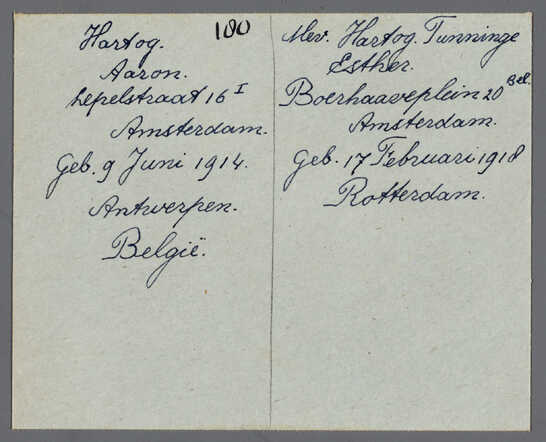 180
Hartog.
Aaron.
Lepelstraat 16 I
Amsterdam.
Geb. 9 Juni 1914.
Antwerpen.
België.
Mev. Hartog. Tunninge
Esther.
Boerhaaveplein 20 Bel.
Amsterdam.
Geb. 17 Februari 1918
Rotterdam.